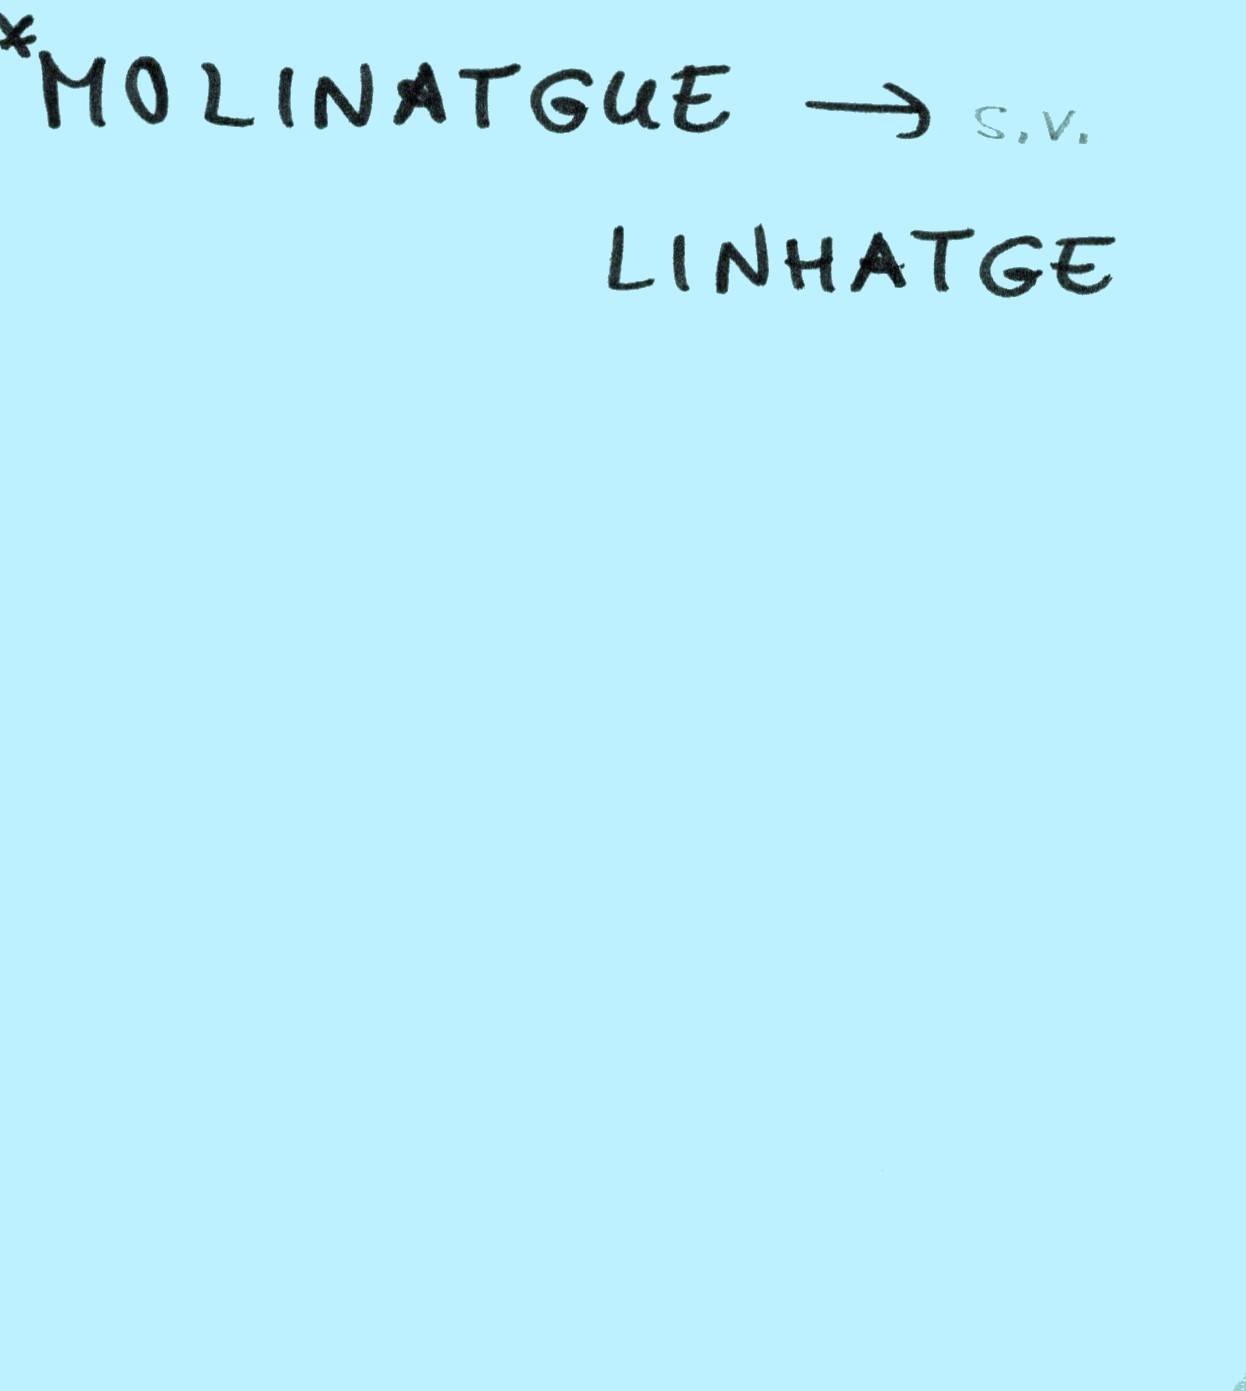 *MOLINATGUE → s.v.
LINHATGE